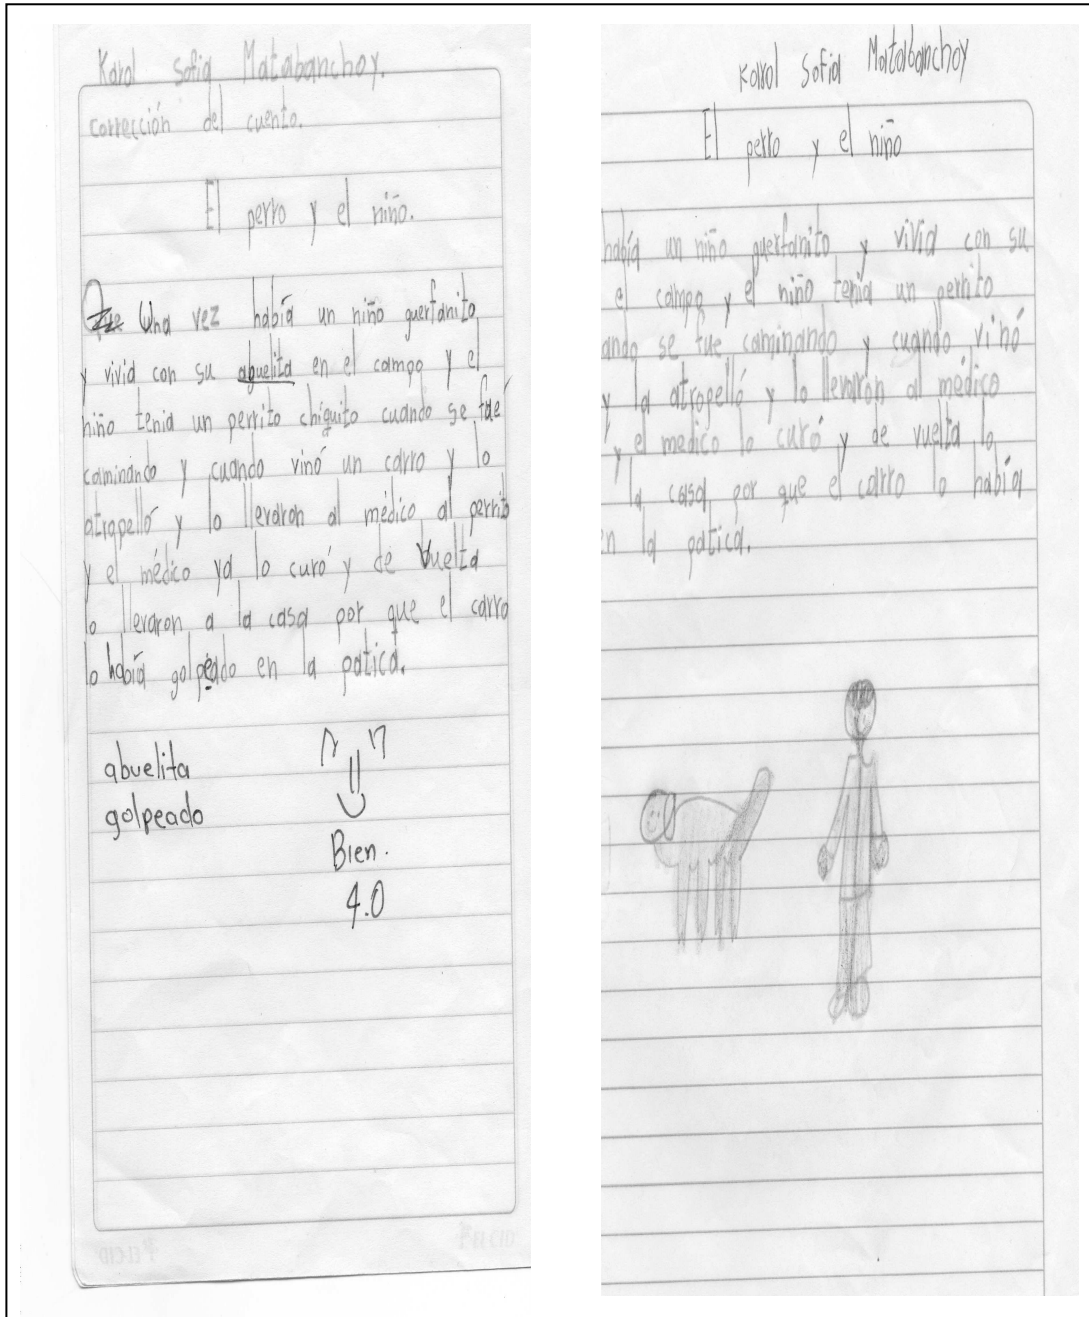 Karol Sofia Matabanchoy.
corrección del cuento.
El perro y el niño.
Una vez había un niño guerfanito
y vivia con su abuelita en el campo y el
niño tenia un perrito chiquito cuando se fué
caminando y cuando vinó un carro y lo
atropelló y lo llevaron al médico al perrito
y el médico ya lo curó y de vuelta
lo llevaron a la casa por que el carro
lo había golpeado en la patica.
abuelita
golpeado
Bien.
4.0
Karol Sofia Matabanchoy
El perro y el niño
había un niño guerfanito y vivia con su
el campo y el niño tenia un perrito
ando se fue caminando y cuando vinó
y la atropelló y lo llevaron al médico
y el medico lo curó y de vuelta lo
la casa por que el carro lo había
en la patica.